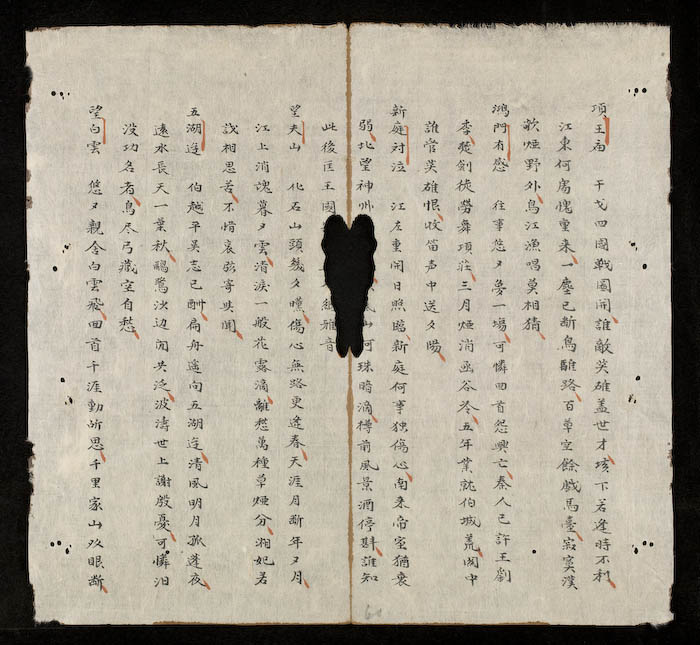 項王庙 干戈四國戰圖開誰敵英雄盖世才垓下若逢時不利
江東何處愧重来一塵已断烏騅路百草空餘戲馬臺寂寞漢
歌煙野外烏江漁唱莫相猜
鴻門有感 往事悠々夢一場可憐回首怨興亡秦人已許王劉
季楚剣徒勞舞項莊三月煙消函谷冷五年業就伯城荒関中
誰管英雄恨牧笛声中送夕陽
新庭対泣 江左重開日照臨新庭何事独傷心南来帝室猶衰
弱北望神州 山河珠暗滴樽前風景酒停斟誰知
此後匡王國 雅音
望夫山 化石山頭幾夕曛傷心無路更逢春天涯月断年々月
江上消魂暮々雲清淚一般花露滴離愁萬種草煙分湘妃若
説相思苦不惜哀弦寄与聞
五湖逰 伯越平吳志已酬扁舟遥向五湖逰清風明月孤蓬夜
遠水長天一葉秋鷗鷺沙边閒共泛波濤世上謝殷憂可憐泪
没功名者鳥尽弓藏空自愁
望白雲 悠々親舎白雲飛回首千涯動所思千里家山双眼断